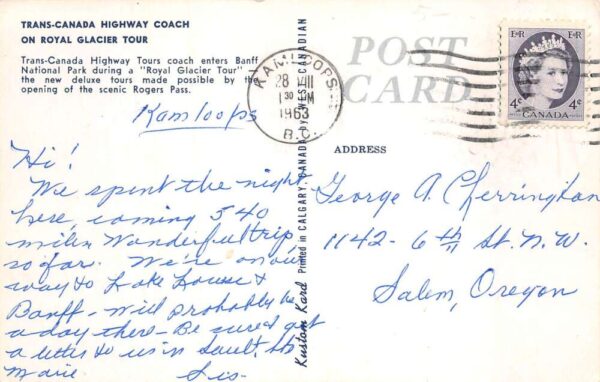 TRANS-CANADA HIGHWAY COACH
ON ROYAL GLACIER TOUR
Trans-Canada Highway Tours coach enters Banff
National Park during a "Royal Glacier Tour"
the new deluxe tours made possible by the
opening of the scenic Rogers Pass.
Kamloops
Hi!
We spent the night
here, coming 540
miles Wonderful trip
so far. We're on our
way to Lake Louise &
Banff - Will probably be
a day there - Be sure & get
a letter to us in Sault, Ste
Marie Sis
Kustom Kard Printed in CALGARY, CANADA by WEST. CANADIAN
POST
CARD
KAMLOOPS
28 VIII
1 30 PM
1963
B.C.
E R E R
4¢ 4¢
CANADA
ADDRESS
George A. Cherrington
1142 - 6th St. N.W.
Salem, Oregon